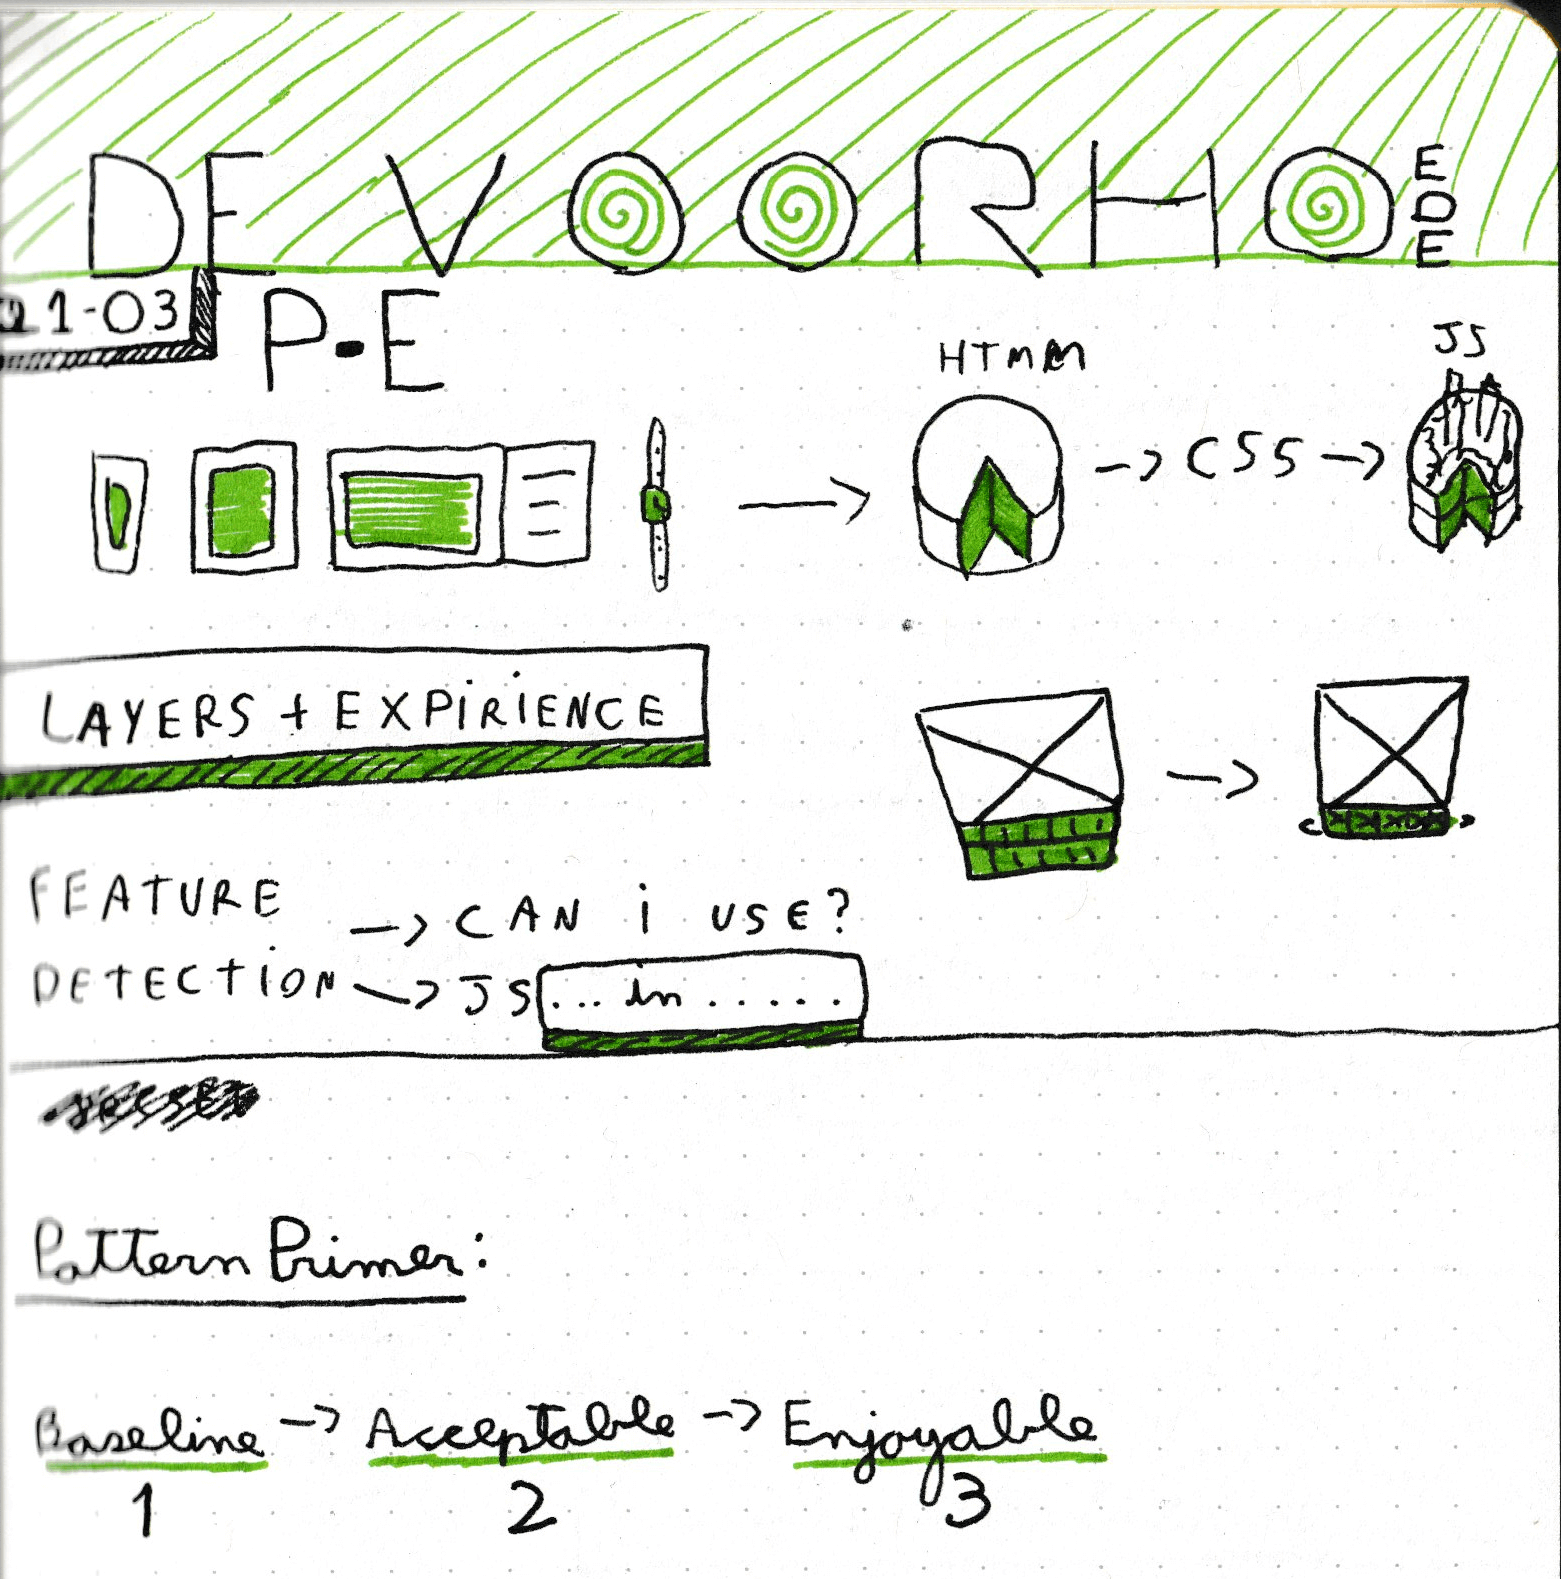 DE VOORHOEDE
1-03
P-E
HTML
JS
CSS
LAYERS + EXPIRIENCE
FEATURE
DETECTION
CAN i USE?
JS ... in .....
Pattern Primer:
Baseline -> Acceptable -> Enjoyable
1 2 3